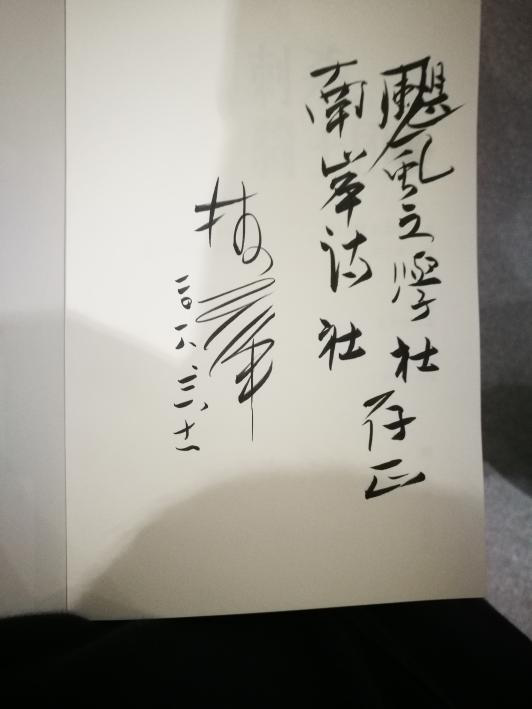 颶風文學社
南岸诗社
存正
二〇一八、三、十一